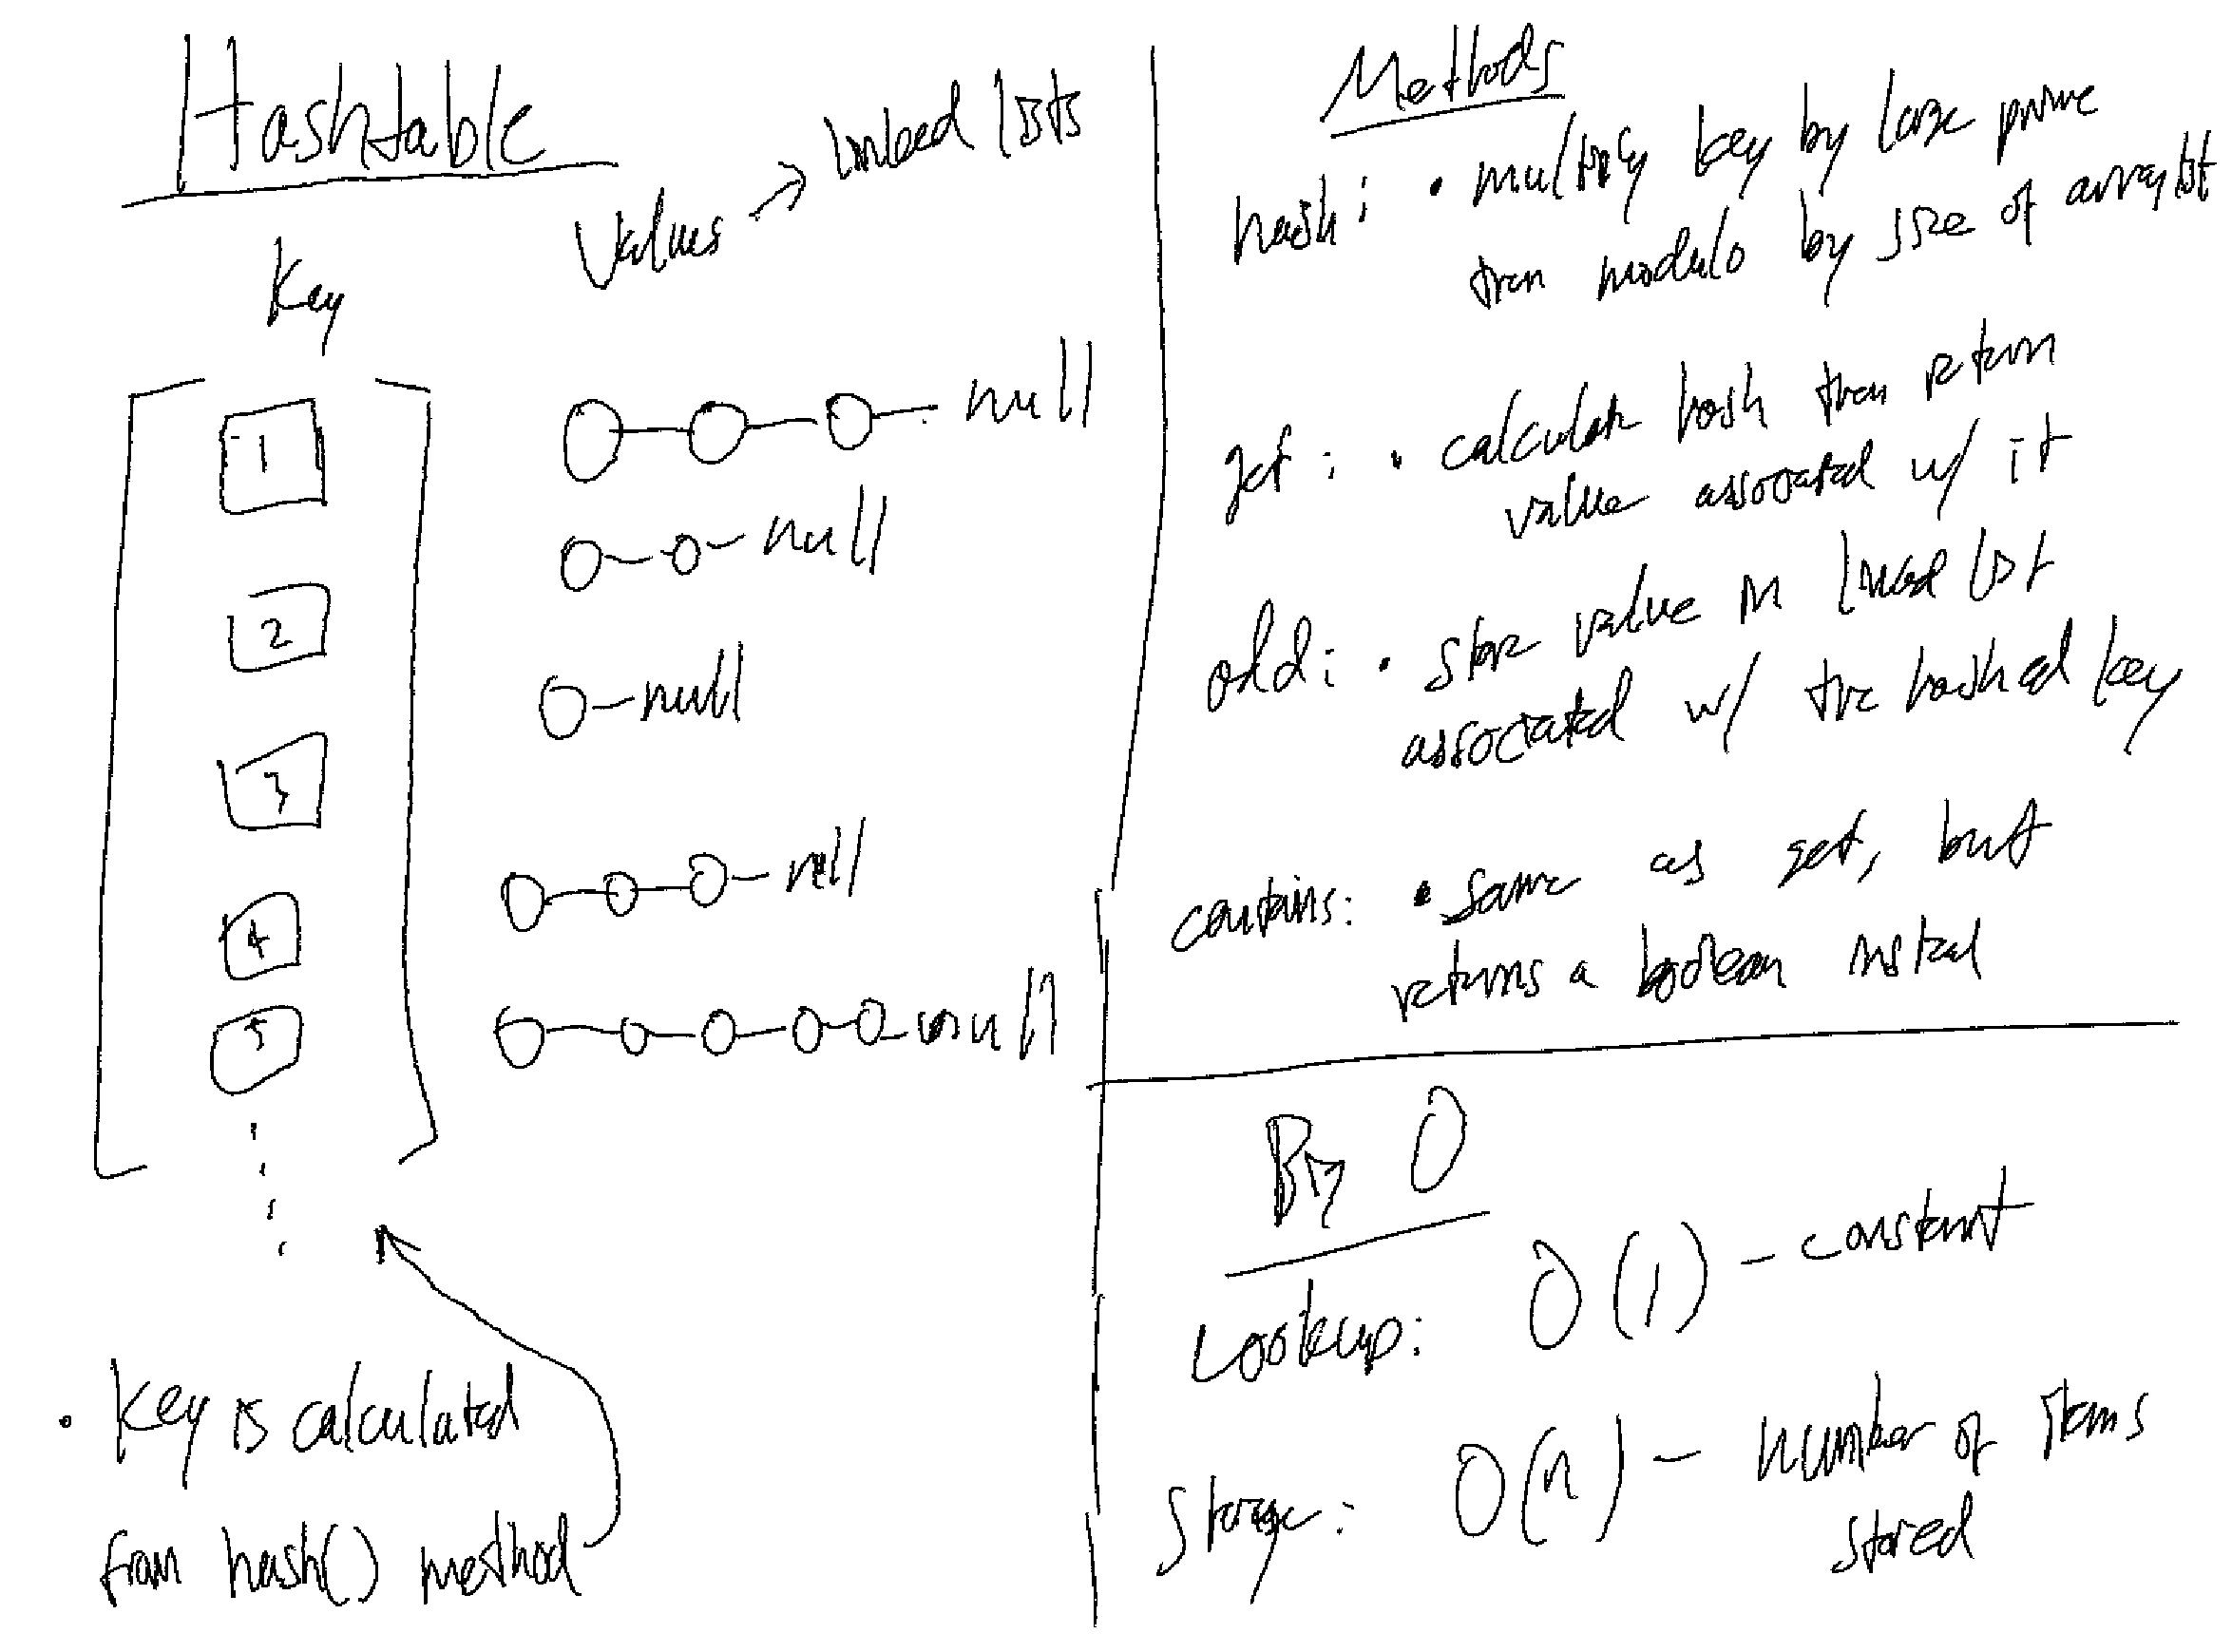 Hashtable
Values → linked lists
Key
1
null
2
null
null
3
4
null
5
null
• Key is calculated
from hash() method
Methods
hash: • multiply key by large prime
then modulo by size of arraylist
get: • calculate hash then return
value associated w/ it
add: • store value in linked list
associated w/ the hashed key
contains: • same as get, but
returns a boolean instead
Big O
Lookup: O(1) - constant
Storage: O(n) - number of items
stored